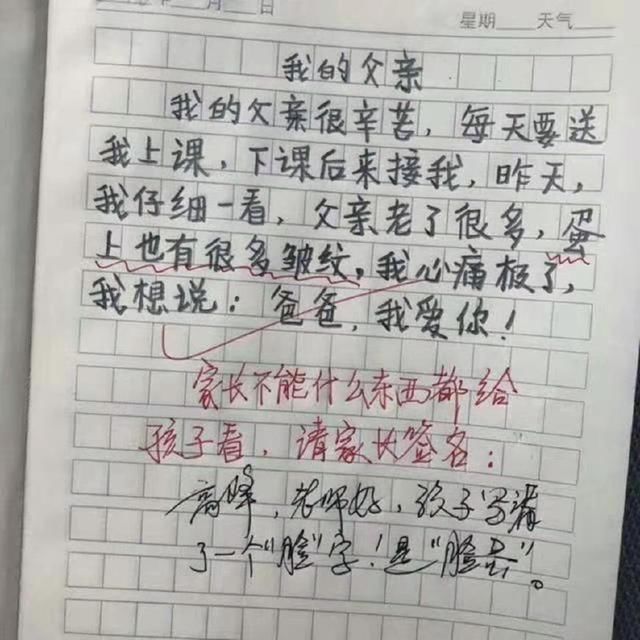 月 日 星期 天气
我的父亲
我的父亲很辛苦，每天要送
我上课，下课后来接我，昨天，
我仔细一看，父亲老了很多，蛋
上也有很多皱纹，我心痛极了，
我想说：爸爸，我爱你！
家长不能什么东西都给
孩子看，请家长签名：
高峰，老师好，孩子写漏
了一个“脸”字！是“脸蛋”。